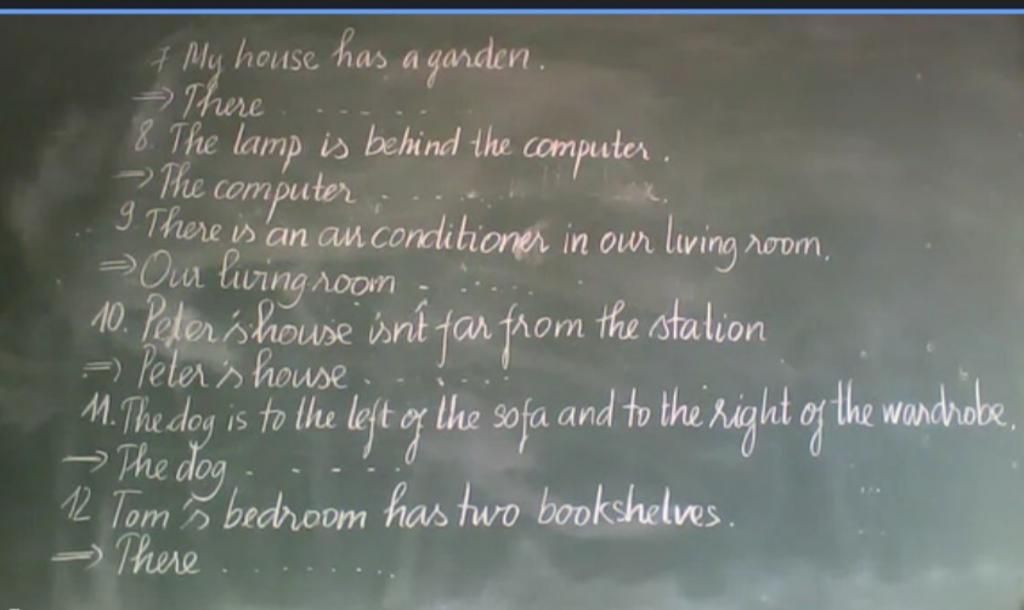 7 My house has a garden.
⇒ There .........
8. The lamp is behind the computer.
→ The computer .........
9 There is an air conditioner in our living room.
⇒ Our living room .........
10. Peter's house isn't far from the station
⇒ Peter's house .........
11. The dog is to the left of the sofa and to the right of the wardrobe.
→ The dog .........
12 Tom's bedroom has two bookshelves.
⇒ There .........